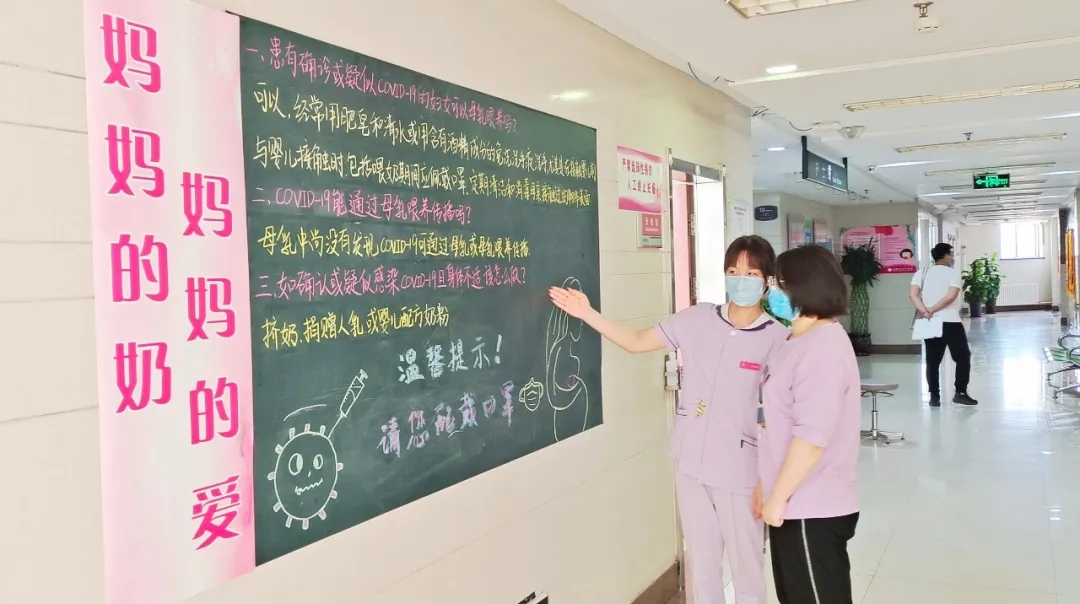 妈妈的奶
妈妈的爱
一、患有确诊或疑似COVID-19的妇女可以母乳喂养吗?
可以，经常用肥皂和清水或用含有酒精成分的免洗洗手液洗手尤其是在接触婴儿前
与婴儿接触时,包括喂奶期间应佩戴口罩,定期清洁和消毒用亲接触过的物体表面
二、COVID-19能通过母乳喂养传播吗?
母乳中尚没有发现COVID-19可通过母乳或母乳喂养传播.
三、如确认或疑似感染COVID-19且身体不适该怎么做?
挤奶.捐赠人乳或婴儿配方奶粉
温馨提示!
请您配戴口罩